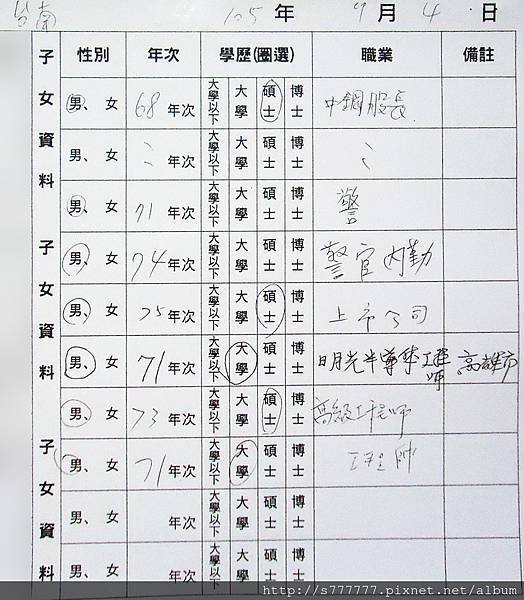 台南 105 年 9 月 4 日
子女資料 性別 年次 學歷(圈選) 職業 備註
男、女 68 年次 大學以下 大學 碩士 博士 中鋼股長
男、女 年次 大學以下 大學 碩士 博士
男、女 71 年次 大學以下 大學 碩士 博士 警
子女資料 男、女 74 年次 大學以下 大學 碩士 博士 警官內勤
男、女 75 年次 大學以下 大學 碩士 博士 上市公司
男、女 71 年次 大學以下 大學 碩士 博士 日月光半導體工程師 高雄市
男、女 73 年次 大學以下 大學 碩士 博士 高級工程師
子女資料 男、女 71 年次 大學以下 大學 碩士 博士 工程師
男、女 年次 大學以下 大學 碩士 博士
男、女 年次 大學以下 大學 碩士 博士
http://s777777.pixnet.net/album